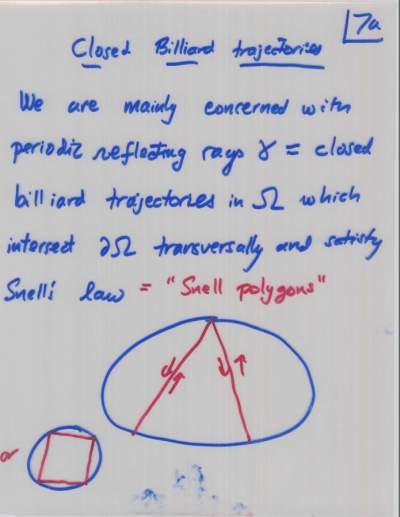 7a
Closed Billiard trajectories
We are mainly concerned with
periodic reflecting rays γ = closed
billiard trajectories in Ω which
intersect ∂Ω transversally and satisfy
Snell's law = "Snell polygons"
or